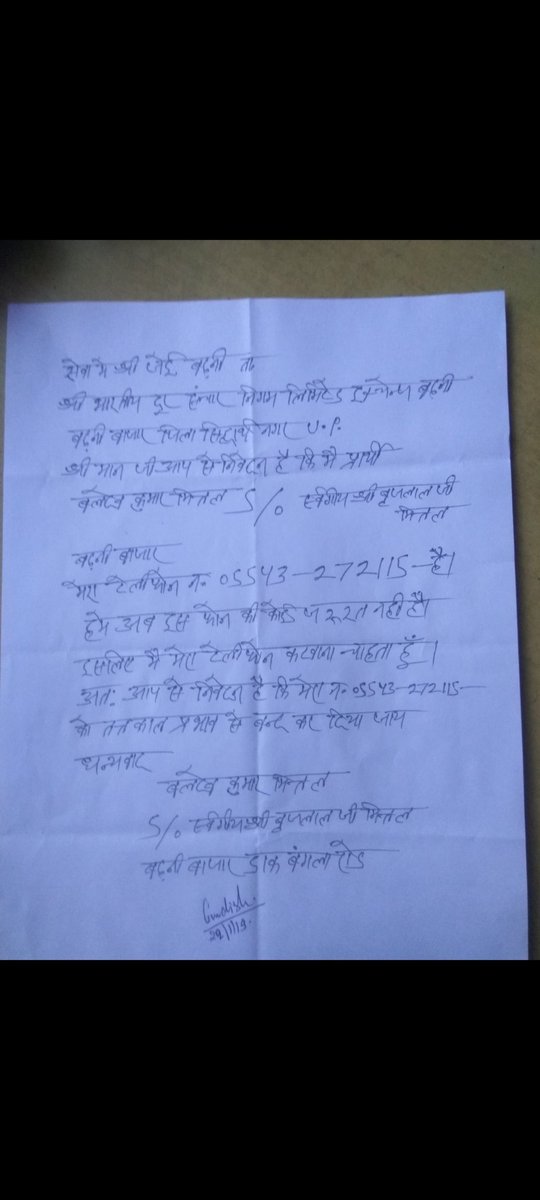 सेवा मे श्री जेई बढ़नी ता.
श्री भारतीय दूर संचार निगम लिमिटेड इक्चेन्ज बढ़नी
बढ़नी बाजार जिला सिद्धार्थ नगर U.P.
श्री मान जी आप से निवेदन है कि मै प्रार्थी
बलदेव कुमार मित्तल S/o स्वर्गीय श्री बृजलाल जी
मित्तल
बढ़नी बाजार
मेरा टेलीफोन न. 05543-272115- है।
हमे अब इस फोन की कोई जरूरत नही है।
इसलिए मै मेरा टेलीफोन कटवाना चाहता हूँ।
अतः आप से निवेदन है कि मेरा न. 05543-272115-
को तत्काल प्रभाव से बन्द कर दिया जाय
धन्यवाद
बलदेव कुमार मित्तल
S/o स्वर्गीय श्री बृजलाल जी मित्तल
बढ़नी बाजार डाक बंगला रोड
29/1/19.